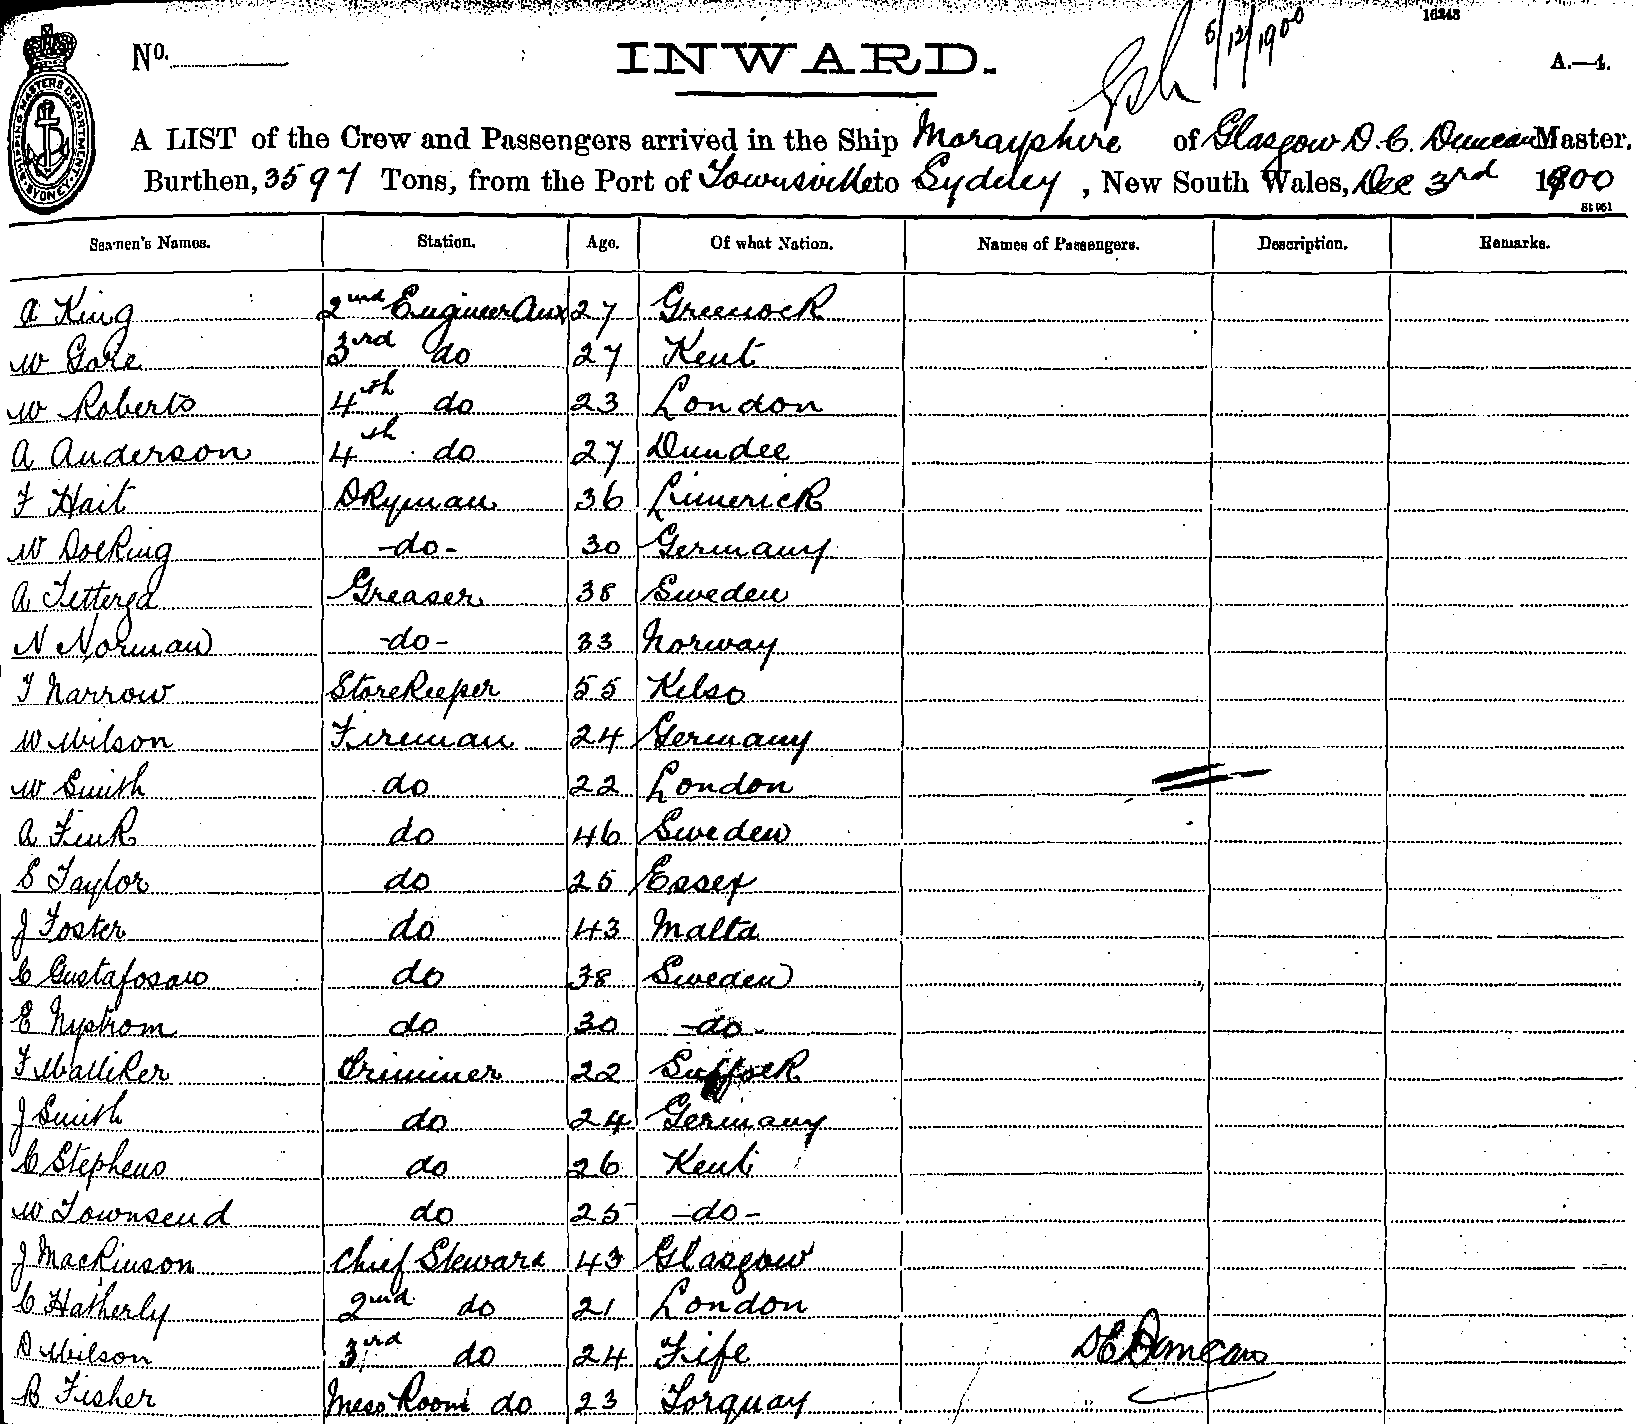 16243
5/12/1900
No.
INWARD.
A.—4.
SHIPPING MASTERS DEPARTMENT SYDNEY
A LIST of the Crew and Passengers arrived in the Ship Morayshire of Glasgow D. C. Duncan Master.
Burthen, 3597 Tons, from the Port of Townsville to Sydney, New South Wales, Dec 3rd 1900
Seamen's Names. Station. Age. Of what Nation. Names of Passengers. Description. Remarks.
A King 2nd Engineer Aux 27 Greenock
W Gore 3rd do 27 Kent
W Roberts 4th do 23 London
A Anderson 4th do 27 Dundee
F Hait Dkyman 36 Limerick
W Doeking -do- 30 Germany
A Tetterga Greaser 38 Sweden
N Norman -do- 33 Norway
T Narrow Storekeeper 55 Kelso
W Wilson Fireman 24 Germany
W Smith do 22 London
A Fink do 46 Sweden
S Taylor do 25 Essex
J Foster do 43 Malta
C Gustafosaw do 38 Sweden
E Nystrom do 30 -do-
F Walliker Trimmer 22 Suffock
J Smith do 24 Germany
C Stephens do 26 Kent
W Townsend do 25 -do-
J Mackinson Chief Steward 43 Glasgow
C Hatherly 2nd do 21 London
D Wilson 3rd do 24 Fife
B Fisher Mess Room do 23 Torquay
D C Duncan